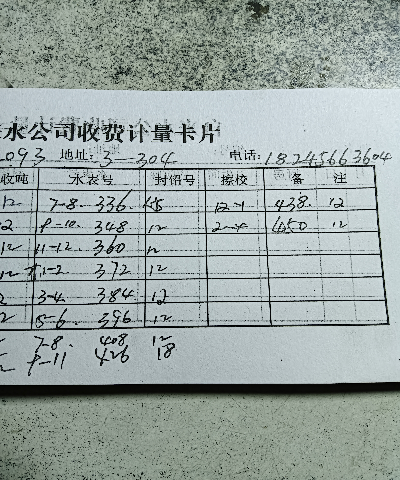 水公司收费计量卡片
093 地址: 3-304 电话: 18245663604
收吨 水表号 封铅号 擦校 备 注
12 7-8. 336. 12-1 438. 12
2 9-10. 348 12 450 12
12 11-12. 360 12
12 1-2 372 12
2 3-4 384 12
2 5-6. 396 12
7-8. 408 12
9-11 426 18